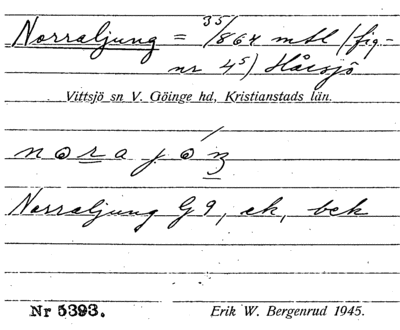 Norraljung = 35/864 mtl (fig-
nr 45) Hårsjö
Vittsjö sn V. Göinge hd, Kristianstads län.
Norraljung G9, ek, bek
Nr 5393. Erik W. Bergenrud 1945.